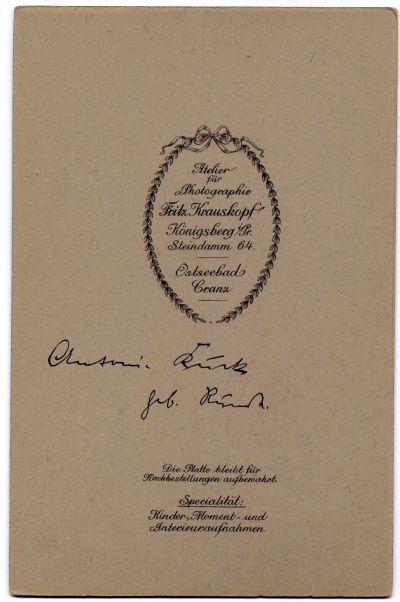 Atelier
für
Photographie
Fritz Krauskopf
Königsberg i/Pr.
Steindamm 64.
Ostseebad
Cranz
Antonie
geb.
Die Platte bleibt für
Nachbestellungen aufbewahrt.
Specialität:
Kinder-, Moment- und
Interieuraufnahmen.